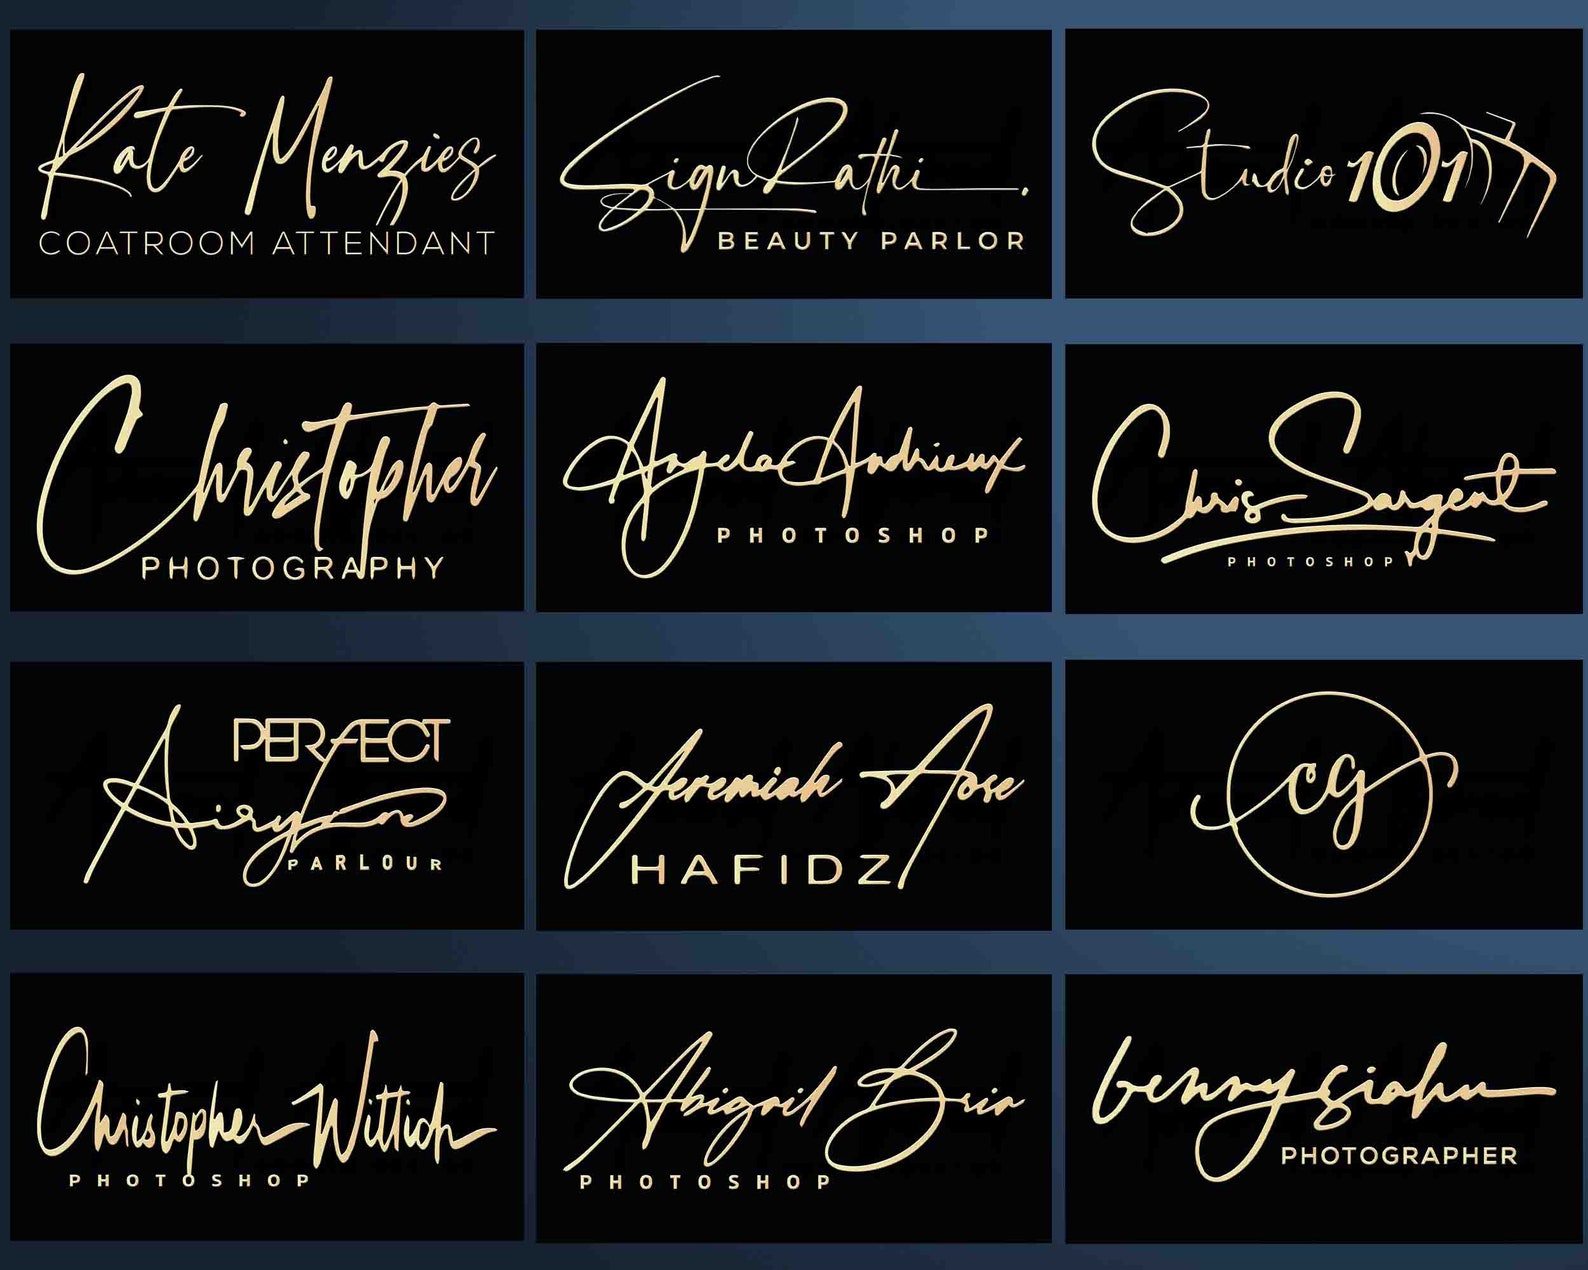 Kate Menzies
COATROOM ATTENDANT
SignRathi
BEAUTY PARLOR
Studio 101
Christopher
PHOTOGRAPHY
Angela Andrieux
PHOTOSHOP
Chris Sargent
PHOTOSHOP
PERFECT
PARLOUR
Jeremiah Aose
HAFIDZ
cg
Christopher Wittich
PHOTOSHOP
Abigail Bria
PHOTOSHOP
benny siahu
PHOTOGRAPHER